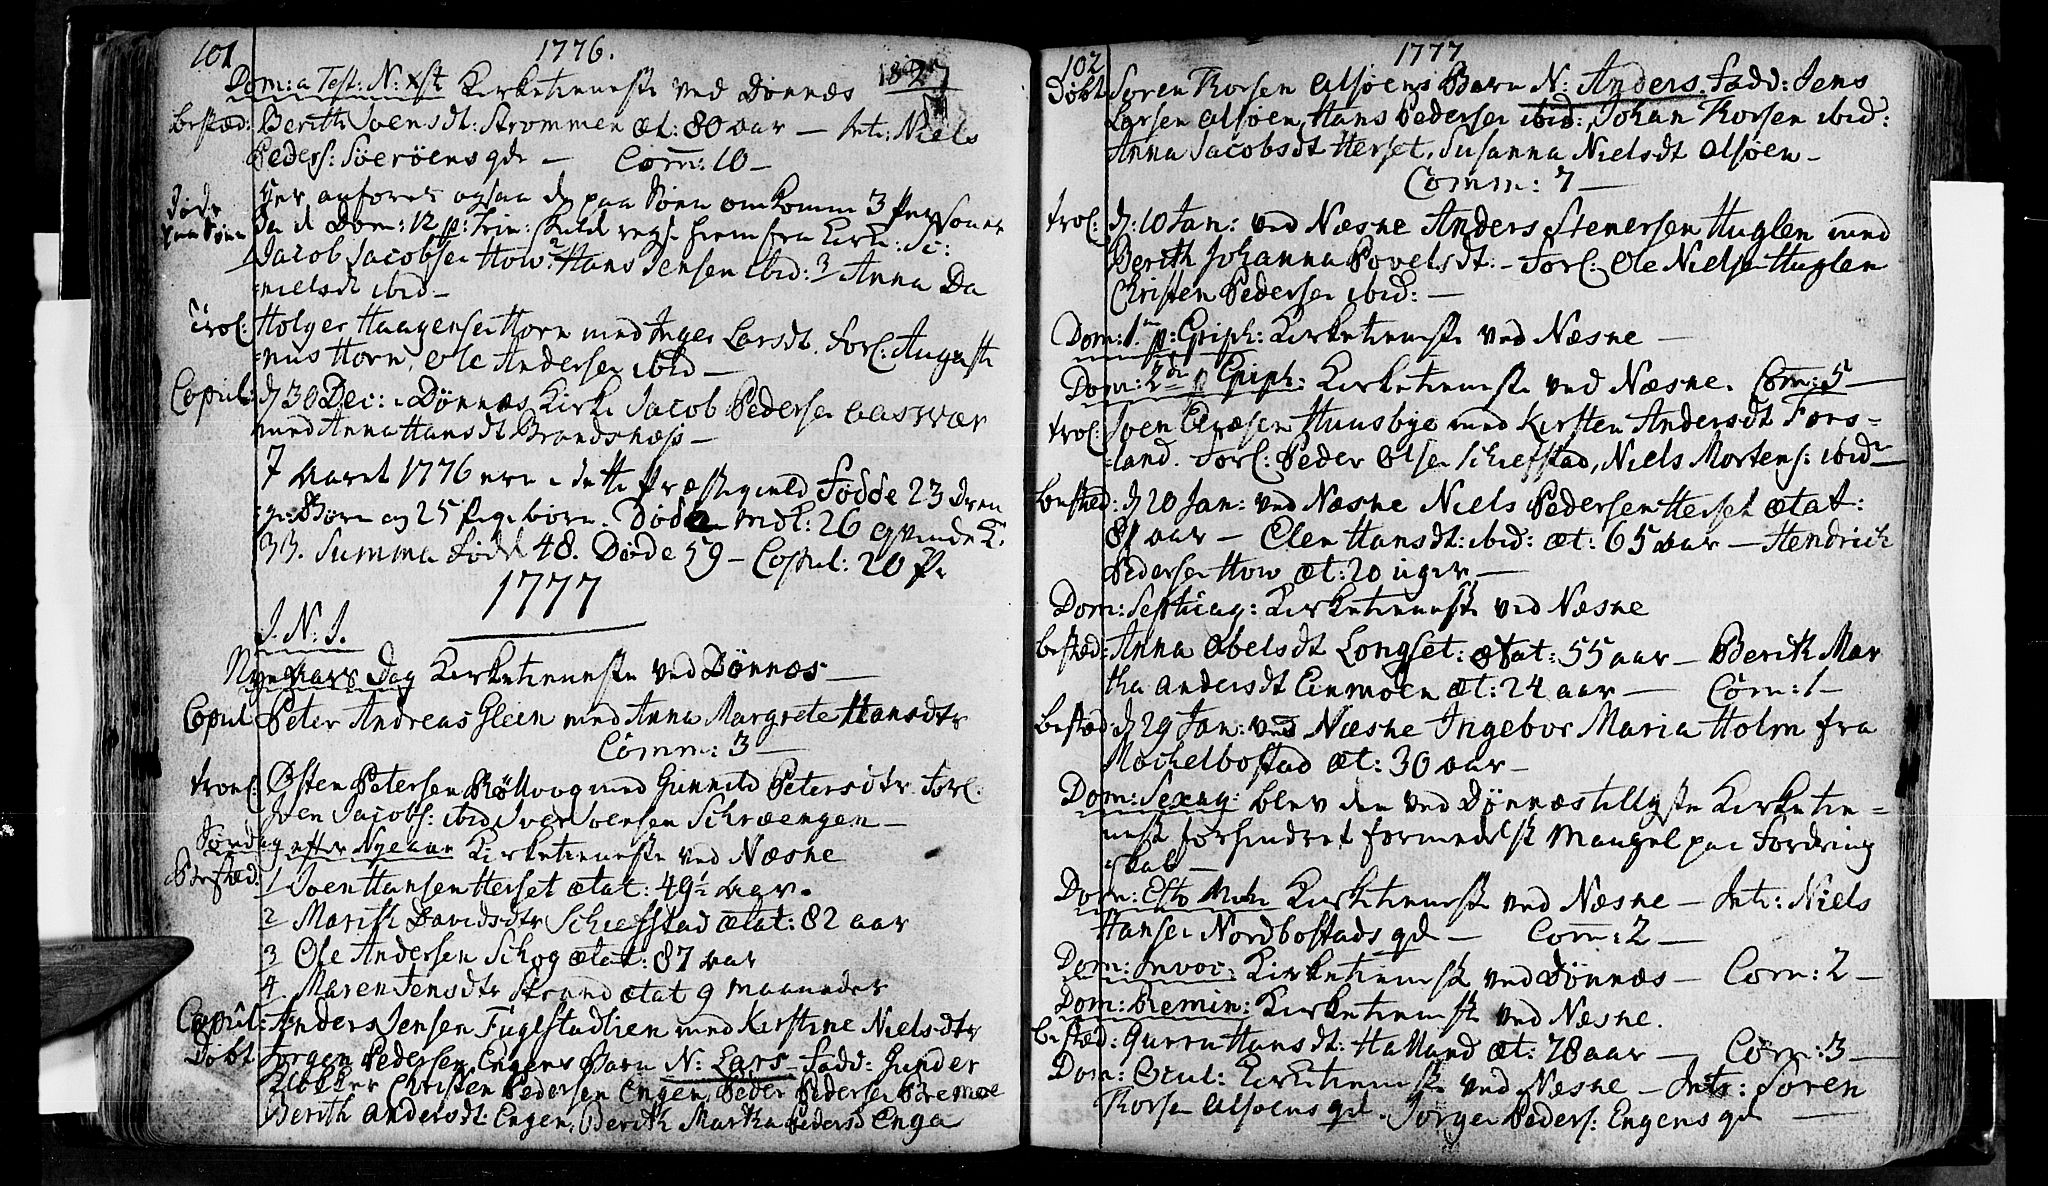 101
1776.
Dom: a Test: N: xsti Kirketieneste ved Dønnæs
bestæd: Berith Svensdt: Strømmen æt: 80 aar — Intr: Niels
Peders: Sørøens qde — Com̄: 10 —
Døde paa Søen
Her anføres ogsaa de paa Søen omkomne 3 Personer
da d Dom: 12 p: Trin: skulde rejse hiem fra Kirke: Sc:
1 Jacob Jacobsen How. 2 Hans Jensen ibid: 3 Anna Da
=nielsdt ibid —
Trol: Holger Haagensen Horn med Inger Larsdt. Forl: Augusti
=nus Horn, Ole Andersen ibid —
Copul: d 30 Dec: i Dønnæs Kirke Jacob Pedersen Aaswær
med Anna Hansdt Brandsnæss —
I Aaret 1776 ere i dette Præstegield Fødde 23 Dren
ge Børn og 25 Pigebørn. Døde Mdk: 26 Qvinde K:
33. Summa Fødde 48. Døde 59 — Copul: 20 Pr
1777
J. N: J.
Nye Aars Dag Kirketieneste ved Dønnæs —
Copul Peter Andreas Gleen med Anna Margrete Hansdtr
Comm: 3 —
trol: Østen Petersen Røllvog med Gunnild Petersdtr. Forl:
Iven Jacobs: ibid Iver Svensen Schrœengen —
Søndag efter Nyeaar Kirketieneste ved Næsne
Bestæd: 1 Sven Hansen Herset ætat: 49½ aar.
2 Marith Davidsdtr Schiefstad ætat: 82 aar
3 Ole Andersen Schog ætat: 87 aar
4 Maren Jensdtr Strand ætat 9 maaneder
Copul: Anders Jensen Fuglstadlien med Kirstine Nielsdtr
Døbt Jørgen Pedersen Engens Barn N: Lars — Fadd: Gunder
Christen Pedersen Engen, Peder Pedersen Bremoe
Berith Andersdt: Engen, Berith Martha Pedersd Enga
102
1777
Døbt Søren Thorsen Alsøens Barn N: Anders. Fadd: Jens
Larsen Alsøen, Hans Pedersen ibid:, Johan Thorsen ibid:
Anna Jacobsdt Herset, Susanna Nielsdt Alsøen —
Comm: 7 —
trol: d: 10 Jan: ved Næsne Anders Stenersen Huglen med
Berith Johanna Povelsdt: — Forl: Ole Nielsen Huglen
Christen Pedersen ibid: —
Dom: 1.ma p: Epiph: Kirketieneste ved Næsne —
Dom: 2da p Epiph: Kirketieneste ved Næsne. Com̄: 5 —
trol: Sven Huusbye med Kirsten Andersdt Fors=
=land. Forl: Peder Olsen Schiefstad, Niels Mortens: ibid —
bestæd: d 20 Jan: ved Næsne Niels Pedersen Herset ætat:
81 aar — Elen Hansdt: ibid: æt: 65 aar — Hendrich
Pedersen How æt: 20 uger —
Dom: Septuag: Kirketieneste ved Næsne
bestæd: Anna Abelsdt Longset: ætat: 55 aar — Berith Mar
tha Andersdt Einmoen æt: 24 aar — Com̄: 1 —
bestæd: d 29 Jan: ved Næsne Ingebor Maria Holm fra
Mochelbostad æt: 30 aar —
Dom: Sexag: blev den ved Dønnæs tillyste Kirketie=
=neste forhindret formedelst Mangel paa Fordring
=skab —
Dom: Esto Mihi Kirketieneste ved Næsne — Intr: Niels
Hansen Nordbostads qde — Com̄: 2 —
Dom: Invoc: Kirketieneste ved Dønnæs — Com: 2 —
Dom: Remin: Kirketieneste ved Næsne.
bestæd: Gurru Hansdt: Halland æt: 78 aar — Com̄: 3 —
Dom: Ocul: Kirketieneste ved Næsne — Intr: Søren
Thorsen Alsøens qd. Jørgen Peders: Engens qd —